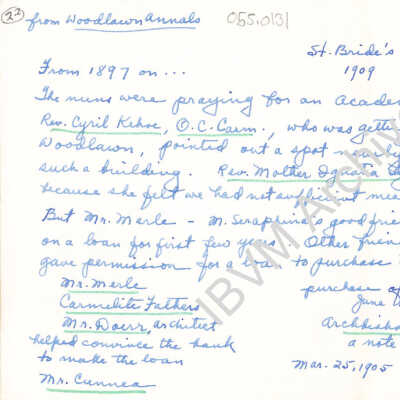 22 from Woodlawn Annals 055.0131
St. Bride's
1909
From 1897 on...
The nuns were praying for an Acade
Rev. Cyril Kehoe, O.C.Carm., who was gett
Woodlawn, pointed out a spot nearly
such a building. Rev. Mother Ignatia
because she felt we had not sufficient mea
But Mr. Merle - M. Seraphina's good frie
on a loan for first few years. Other frien
gave permission for a loan to purchase
Mr. Merle purchase of
Carmelite Fathers June
Mr. Doerr, architect Archbisho
helped convince the bank a note
to make the loan Mar. 25, 1905
Mr. Cunnea
IBVM Archive